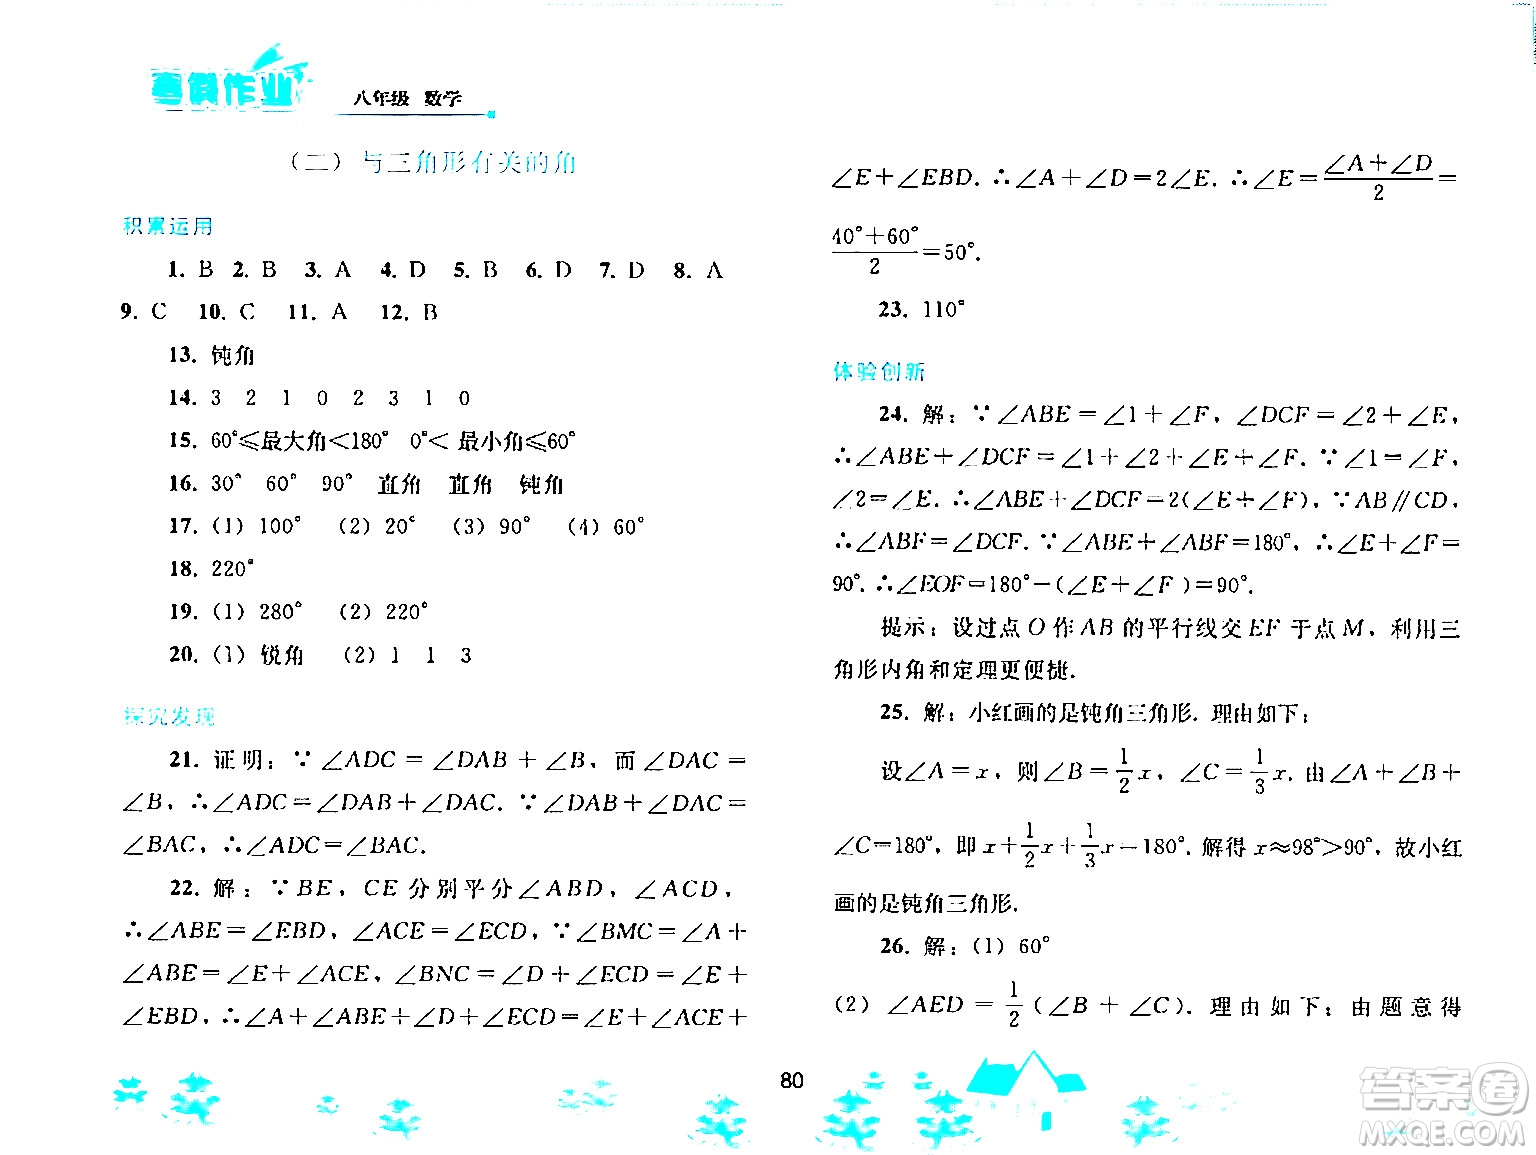 寒假作业 八年级 数学
（二）与三角形有关的角
积累运用
1. B 2. B 3. A 4. D 5. B 6. D 7. D 8. A
9. C 10. C 11. A 12. B
13. 钝角
14. 3 2 1 0 2 3 1 0
15. 60°≤最大角<180° 0°<最小角≤60°
16. 30° 60° 90° 直角 直角 钝角
17. (1) 100° (2) 20° (3) 90° (4) 60°
18. 220°
19. (1) 280° (2) 220°
20. (1) 锐角 (2) 1 1 3
探究发现
21. 证明：∵∠ADC=∠DAB+∠B，而∠DAC=
∠B，∴∠ADC=∠DAB+∠DAC. ∵∠DAB+∠DAC=
∠BAC，∴∠ADC=∠BAC.
22. 解：∵BE，CE分别平分∠ABD，∠ACD，
∴∠ABE=∠EBD，∠ACE=∠ECD，∵∠BMC=∠A+
∠ABE=∠E+∠ACE，∠BNC=∠D+∠ECD=∠E+
∠EBD，∴∠A+∠ABE+∠D+∠ECD=∠E+∠ACE+
∠E+∠EBD. ∴∠A+∠D=2∠E. ∴∠E=(∠A+∠D)/2=
(40°+60°)/2=50°.
23. 110°
体验创新
24. 解：∵∠ABE=∠1+∠F，∠DCF=∠2+∠E，
∴∠ABE+∠DCF=∠1+∠2+∠E+∠F. ∵∠1=∠F，
∠2=∠E. ∴∠ABE+∠DCF=2(∠E+∠F)，∵AB∥CD，
∴∠ABF=∠DCF. ∵∠ABE+∠ABF=180°，∴∠E+∠F=
90°. ∴∠EOF=180°-(∠E+∠F)=90°.
提示：设过点O作AB的平行线交EF于点M，利用三
角形内角和定理更便捷.
25. 解：小红画的是钝角三角形. 理由如下：
设∠A=x，则∠B=1/2x，∠C=1/3x. 由∠A+∠B+
∠C=180°，即x+1/2x+1/3x=180°. 解得x≈98°>90°，故小红
画的是钝角三角形.
26. 解：(1) 60°
(2) ∠AED=1/2(∠B+∠C). 理由如下：由题意得
80
答案卷
MXQE.COM